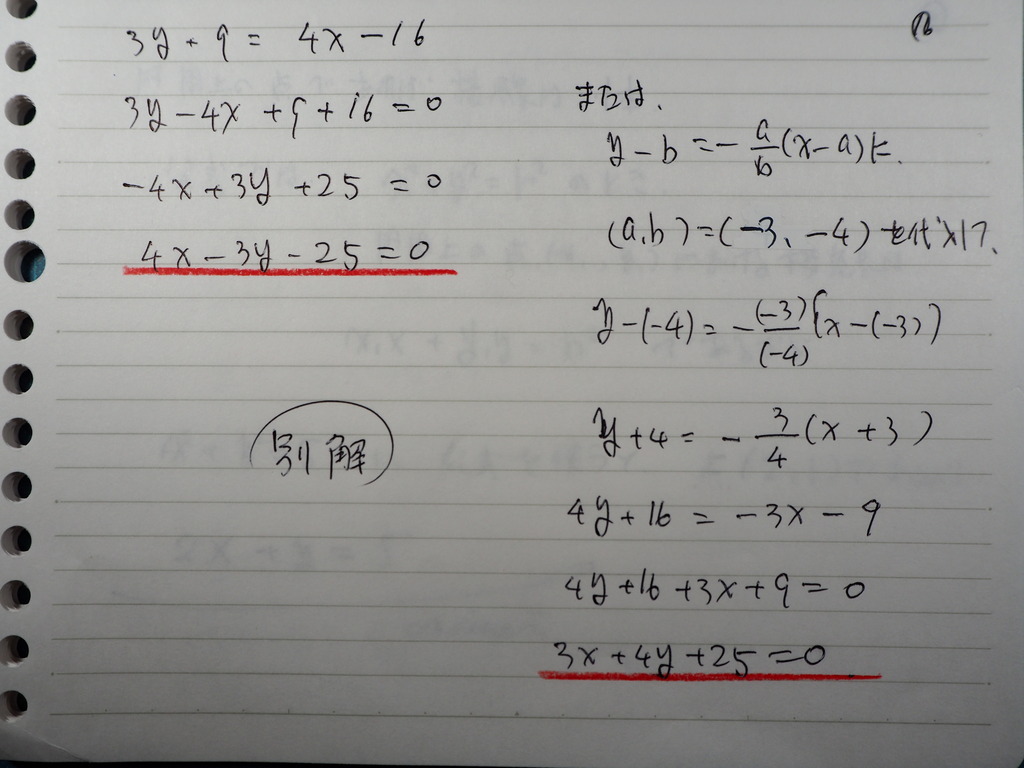 3y + 9 = 4x - 16
3y - 4x + 9 + 16 = 0
-4x + 3y + 25 = 0
4x - 3y - 25 = 0
別解
または、
y - b = - a/b (x - a) に、
(a, b) = (-3、-4) を代入して、
y - (-4) = - (-3)/(-4) {x - (-3)}
y + 4 = - 3/4 (x + 3)
4y + 16 = -3x - 9
4y + 16 + 3x + 9 = 0
3x + 4y + 25 = 0